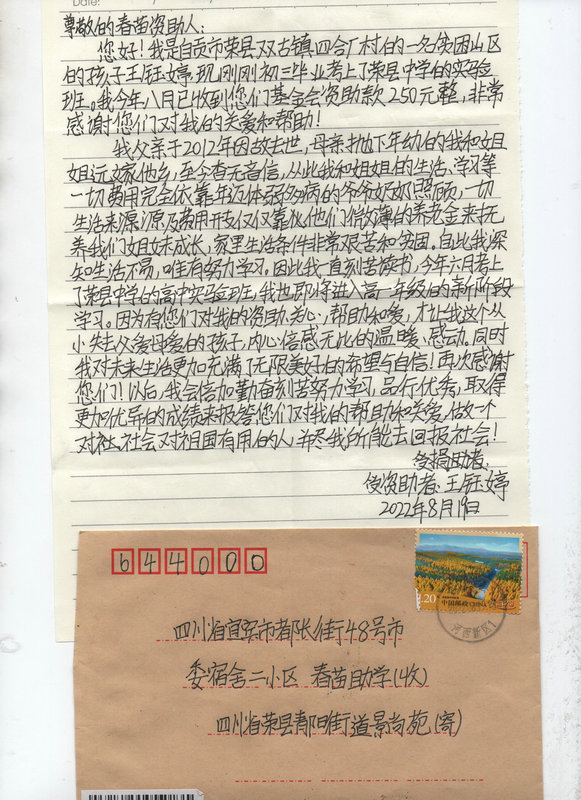 Date:
尊敬的春苗资助人：
您好！我是自贡市荣县双古镇四合厂村的一名贫困山区
的孩子王钰婷，现刚刚初三毕业考上了荣县中学的实验
班。我今年八月已收到您们基金会资助款250元整，非常
感谢您们对我的关爱和帮助！
我父亲于2012年因故去世，母亲抛下年幼的我和姐
姐远嫁他乡，至今杳无音信，从此我和姐姐的生活、学习等
一切费用完全依靠年迈体弱多病的爷爷奶奶照顾，一切
生活来源及费用开支仅仅靠他们微薄的养老金来抚
养我们姐妹成长，家里生活条件非常艰苦和贫困，自此我深
知生活不易，唯有努力学习，因此我一直刻苦读书，今年六月考上
了荣县中学的高中实验班，我也即将进入高一年级的新阶段
学习。因为有您们对我的资助、关心，帮助和爱，才让我这个从
小失去父爱母爱的孩子，内心倍感无比的温暖、感动。同时
我对未来生活更加充满了无限美好的希望与自信！再次感谢
您们！以后，我会倍加勤奋刻苦努力学习，品行优秀，取得
更加优异的成绩来报答您们对我的帮助和关爱，做一个
对社会对祖国有用的人，并尽我所能去回报社会！
受捐助者
受资助者：王钰婷
2022年8月19日
644000
1.20
中国邮政 CHINA
河西新区1
四川省宜宾市都长街48号市
委宿舍二小区 春苗助学(收)
四川省荣县青阳街道景尚苑(寄)